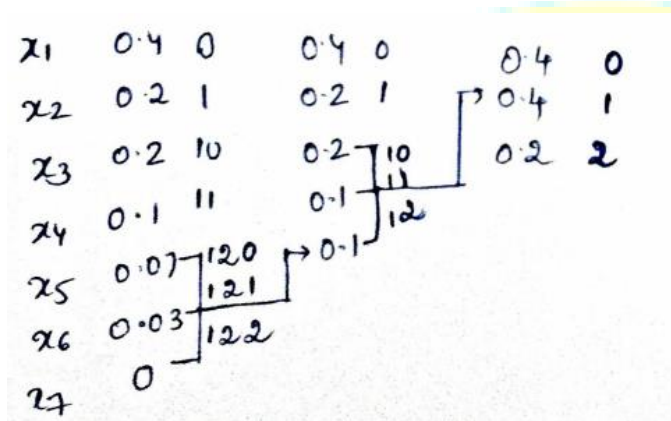 x1 0.4 0 0.4 0 0.4 0
x2 0.2 1 0.2 1 0.4 1
x3 0.2 10 0.2 10 0.2 2
x4 0.1 11 0.1 11
12
x5 0.07 120 0.1
121
x6 0.03 122
x7 0